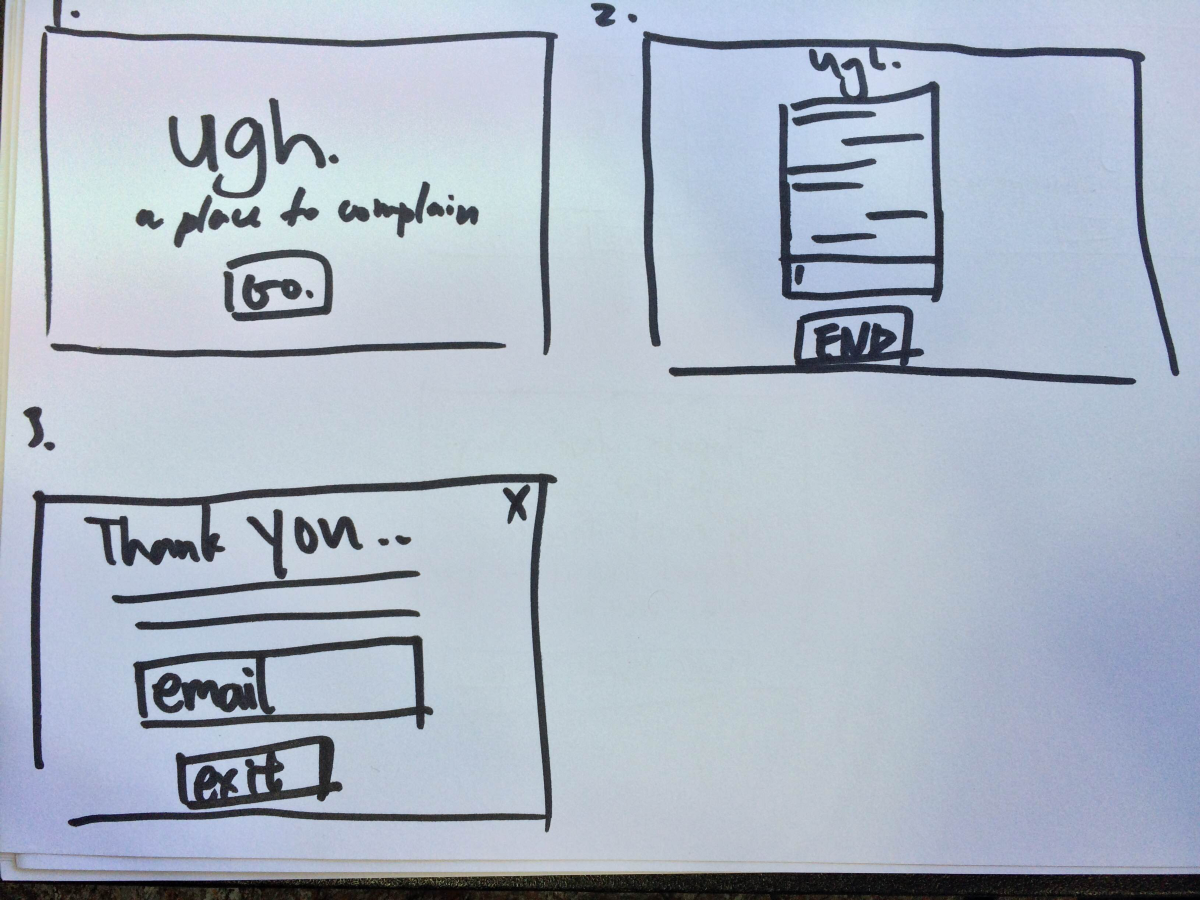 1.
ugh.
a place to complain
Go.
2.
ugh.
END
3.
Thank you..
X
email
exit